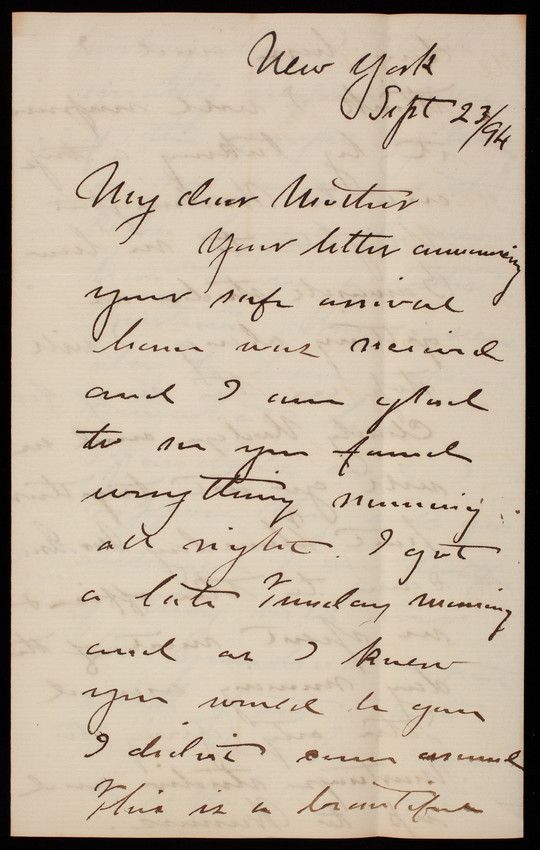 New York
Sept 23/94
My dear Mother
Your letter announcing
your safe arrival
home was received
and I am glad
to see you found
everything running
all right. I got
a late Tuesday morning
and as I knew
you would be gone
I didn't come around
This is a beautiful